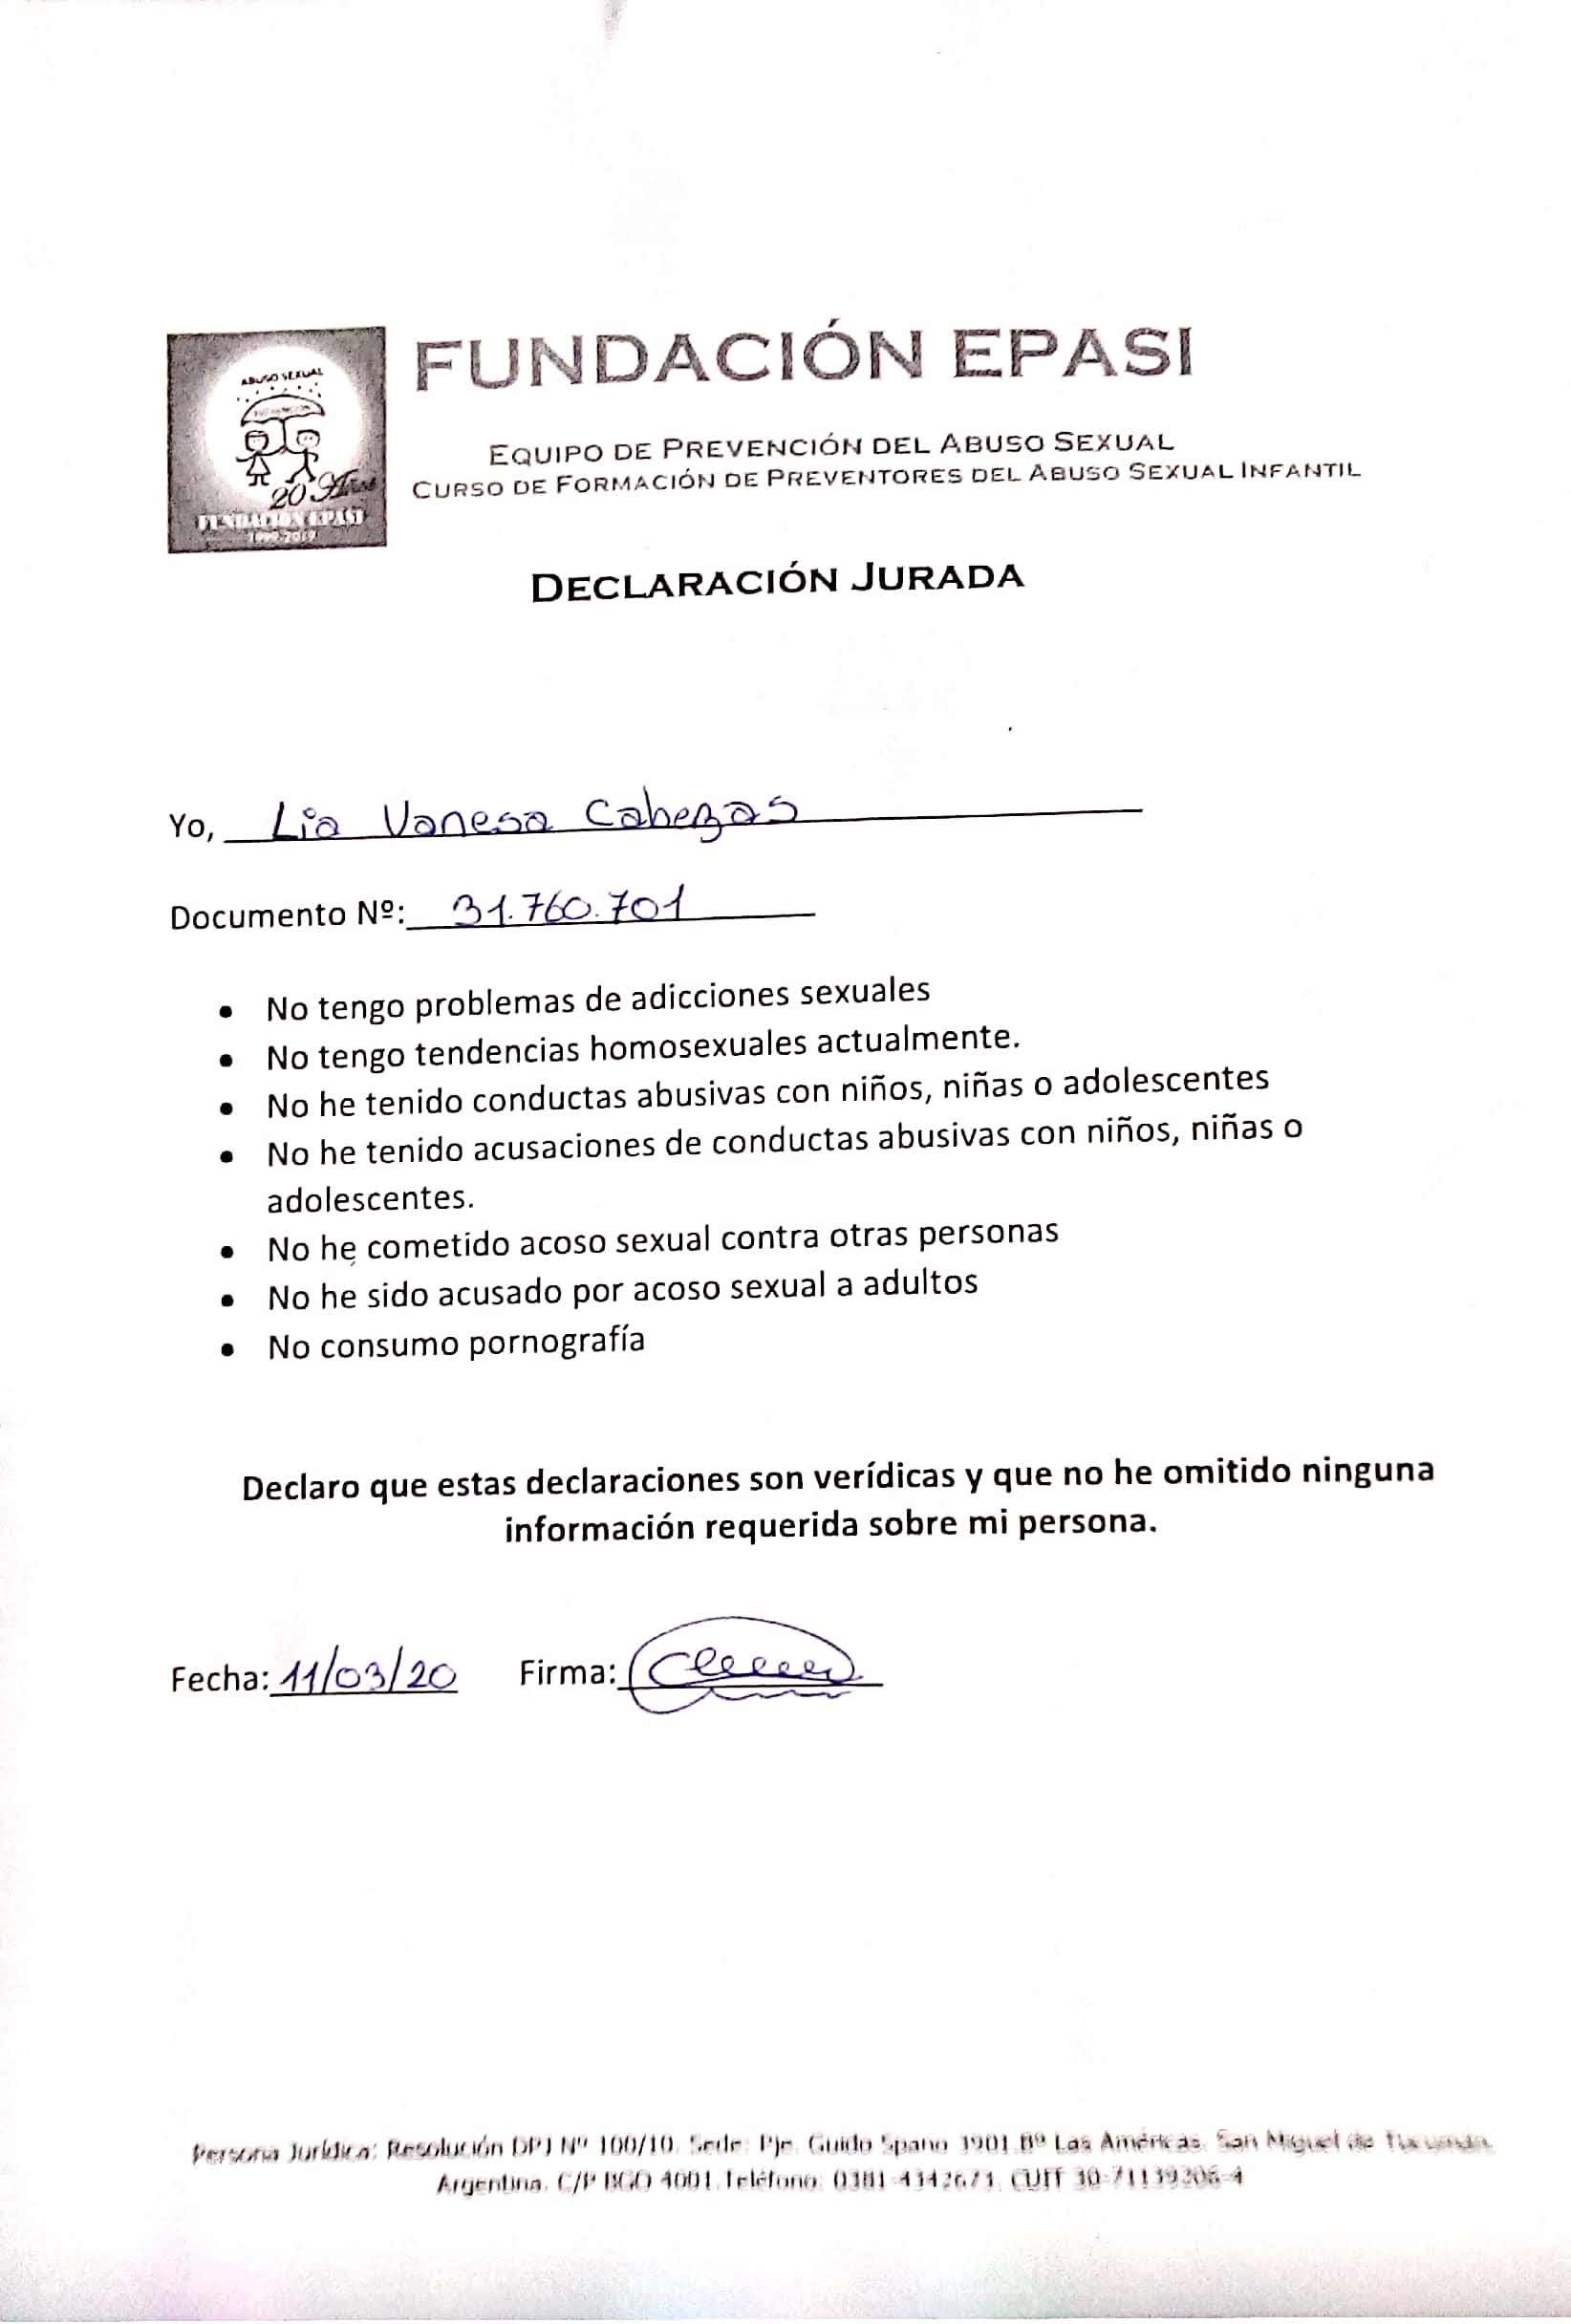 ABUSO SEXUAL
20 Años
FUNDACIÓN EPASI
1999-2019
FUNDACIÓN EPASI
EQUIPO DE PREVENCIÓN DEL ABUSO SEXUAL
CURSO DE FORMACIÓN DE PREVENTORES DEL ABUSO SEXUAL INFANTIL
DECLARACIÓN JURADA
Yo, Lia Vanesa Cabezas
Documento Nº: 31.760.701
• No tengo problemas de adicciones sexuales
• No tengo tendencias homosexuales actualmente.
• No he tenido conductas abusivas con niños, niñas o adolescentes
• No he tenido acusaciones de conductas abusivas con niños, niñas o
adolescentes.
• No he cometido acoso sexual contra otras personas
• No he sido acusado por acoso sexual a adultos
• No consumo pornografía
Declaro que estas declaraciones son verídicas y que no he omitido ninguna
información requerida sobre mi persona.
Fecha: 11/03/20 Firma:
Persona Jurídica: Resolución DPJ Nº 100/10. Sede: Pje. Guido Spano 1901 Bº Las Américas. San Miguel de Tucumán.
Argentina. C/P BGO 4001. Teléfono: 0381 4342671. CUIT